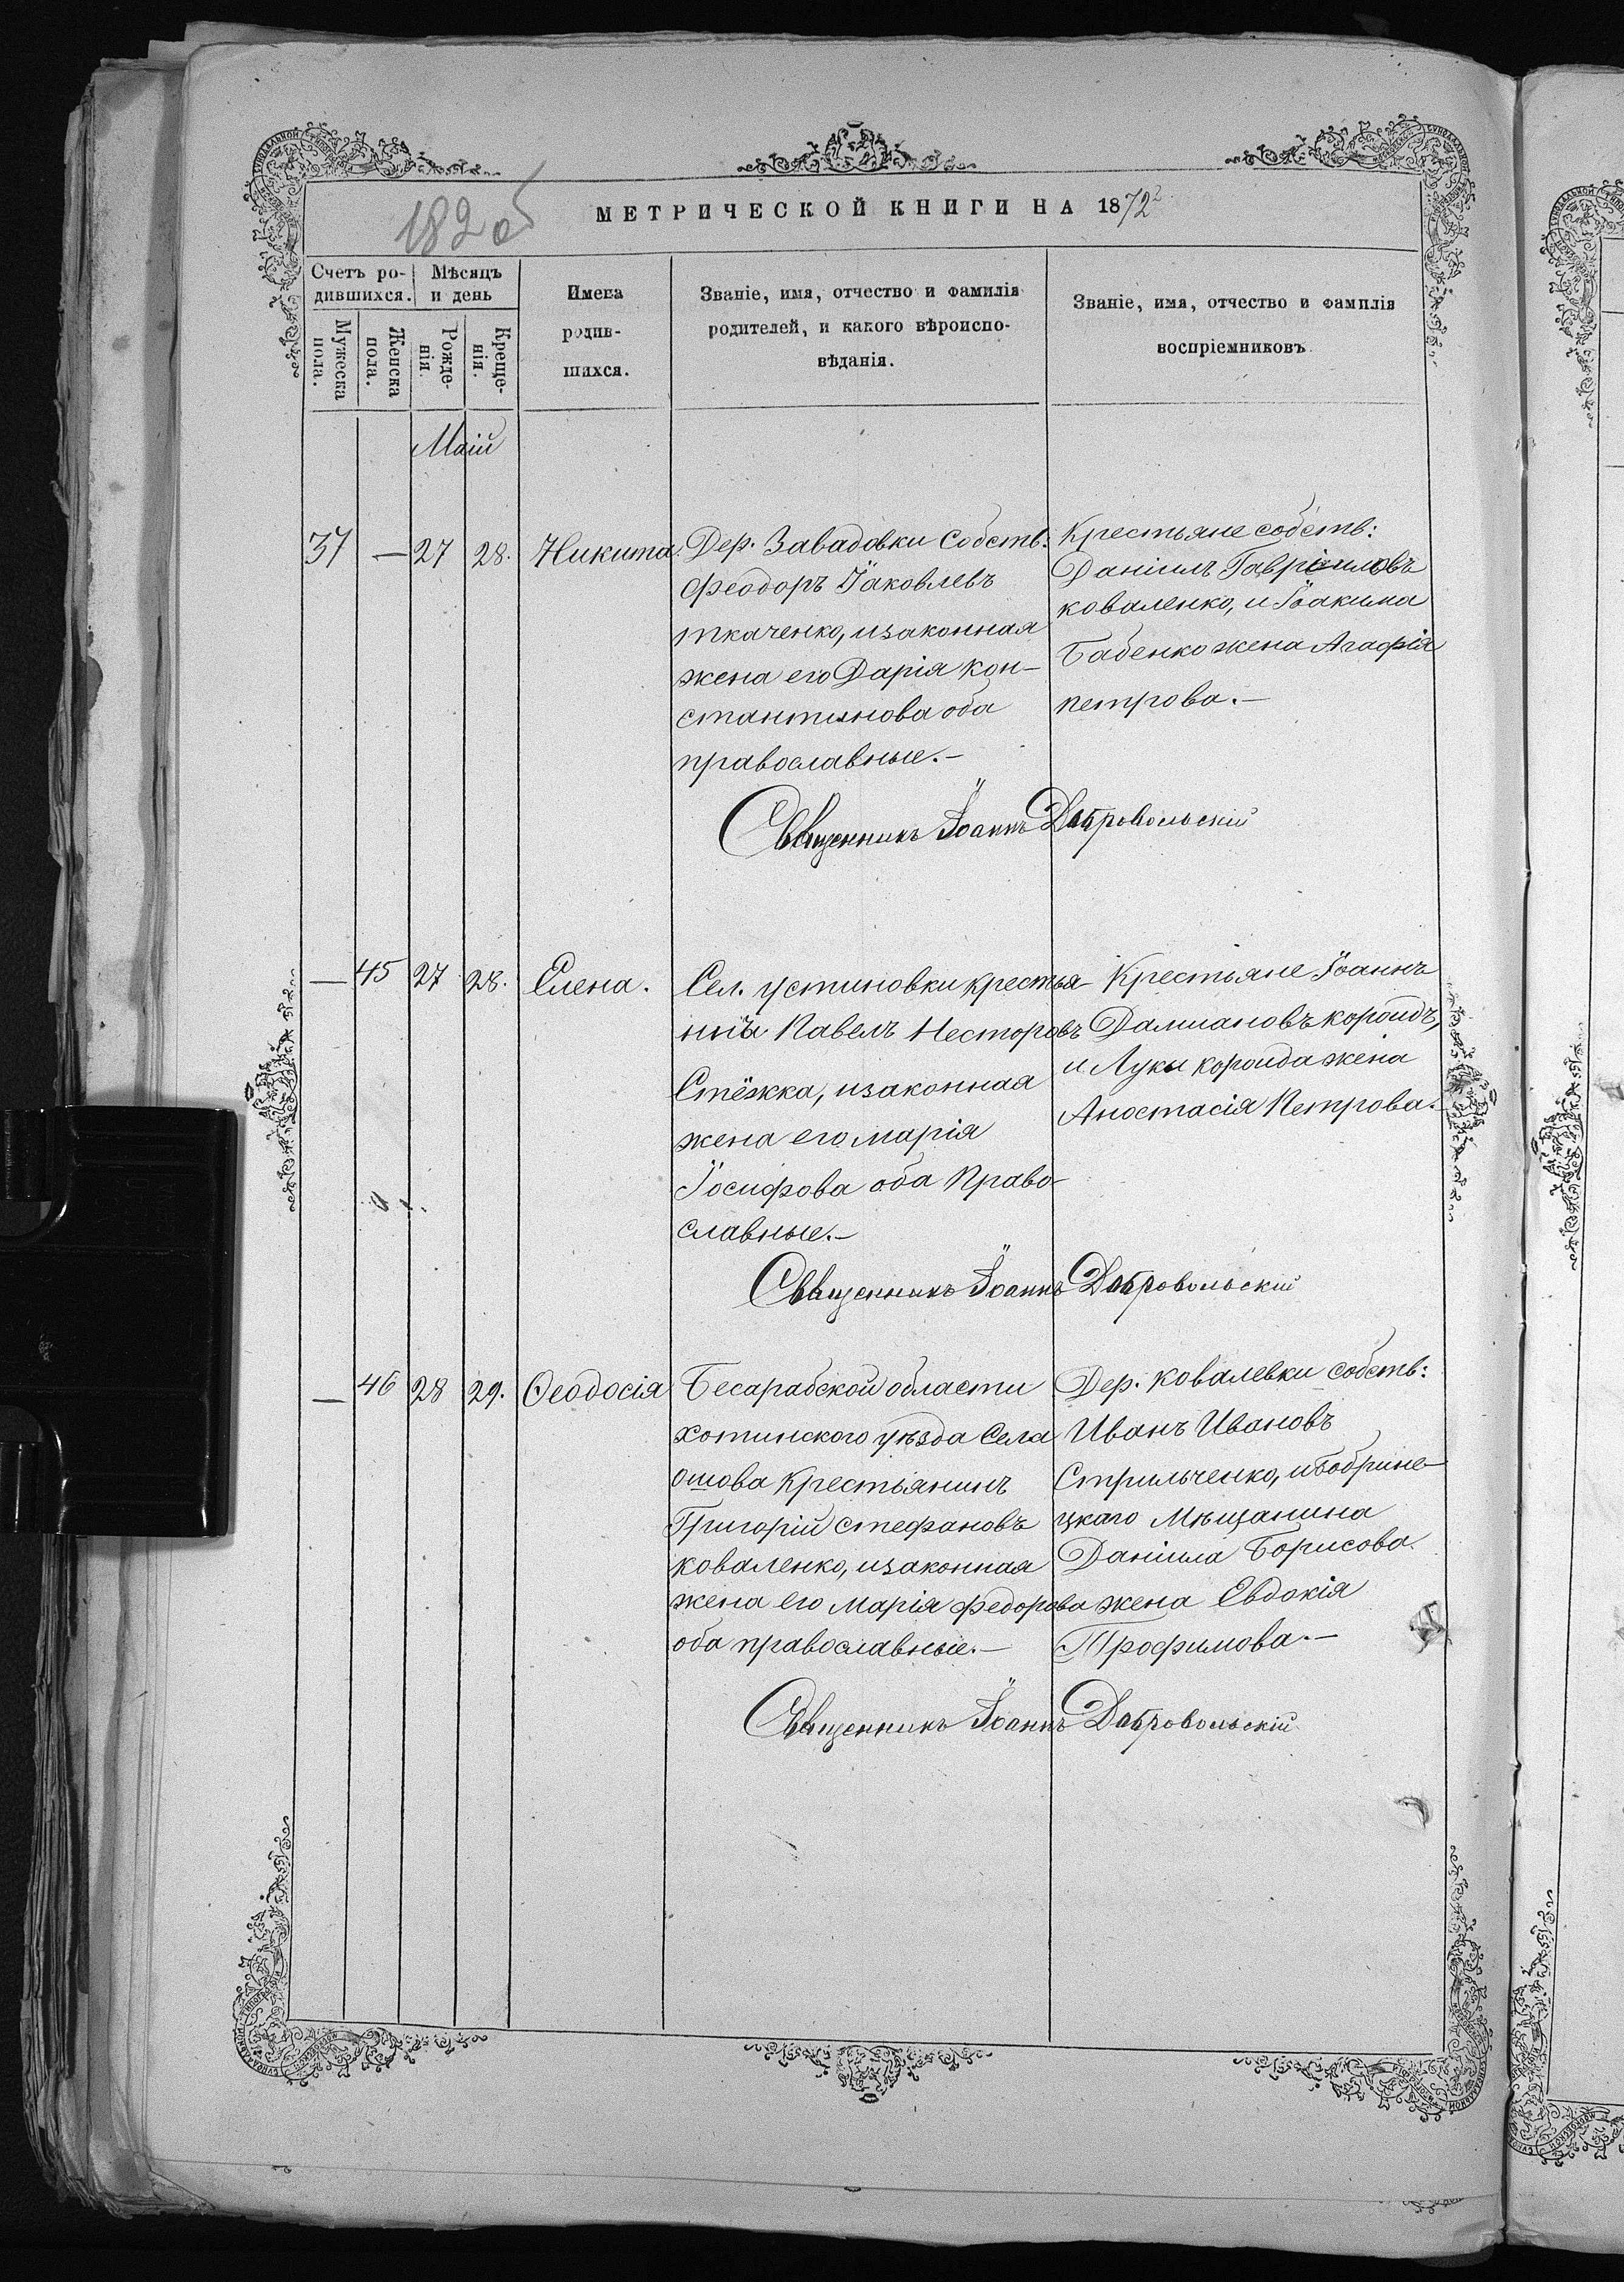 182 об
МЕТРИЧЕСКОЙ КНИГИ НА 1872
Счетъ ро-
дившихся.
Мѣсяцъ
и день
Мужеска
пола.
Женска
пола.
Рожде-
нія.
Креще-
нія.
Имена
родив-
шихся.
Званіе, имя, отчество и фамилія
родителей, и какого вѣроиспо-
вѣданія.
Званіе, имя, отчество и фамилія
воспріемниковъ
Маій
37 — 27 28. Никита.
Дер. Завадовки собств:
Феодоръ Іаковлевъ
ткаченко, и законная
жена его Дарія кон-
стантинова оба
православные.—
Крестьяне собств:
Даніилъ Гавріиловъ
коваленко, и Іоакима
Бабенко жена Агафія
петрова.—
Священникъ Іоаннъ Добровольскій
— 45 27 28. Елена.
Сел. устиновки крестья-
нинъ Павелъ Несторовъ
Стёжка, и законная
жена его марія
Іосифова оба Право-
славные.—
Крестьяне Іоаннъ
Даміановъ короидъ,
и Луки короида жена
Анастасія Петрова.—
Священникъ Іоаннъ Добровольскій
— 46 28 29. Ѳеодосія
Бесарабской области
хотинского уѣзда Села
Крестьянинъ
Григорій стефановъ
коваленко, и законная
жена его Марія федорова
оба православные.—
Дер. Ковалевки собств:
Иванъ Ивановъ
Стрильченко, и бобрине-
цкаго Мѣщанина
Даніила Борисова
жена Евдокія
Трофимова.—
Священникъ Іоаннъ Добровольскій